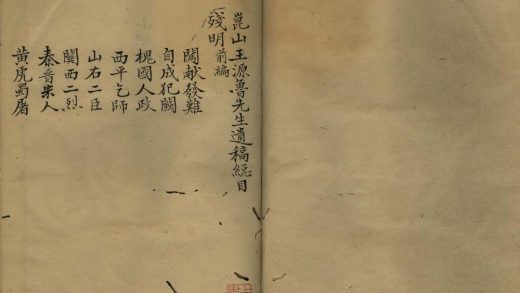 崑山王源魯先生遺稿總目
殘明前編
闖献發難
自成犯闕
槐國人政
西平乞師
山右二臣
關西二烈
秦晋朱人
黄虎蜀屠